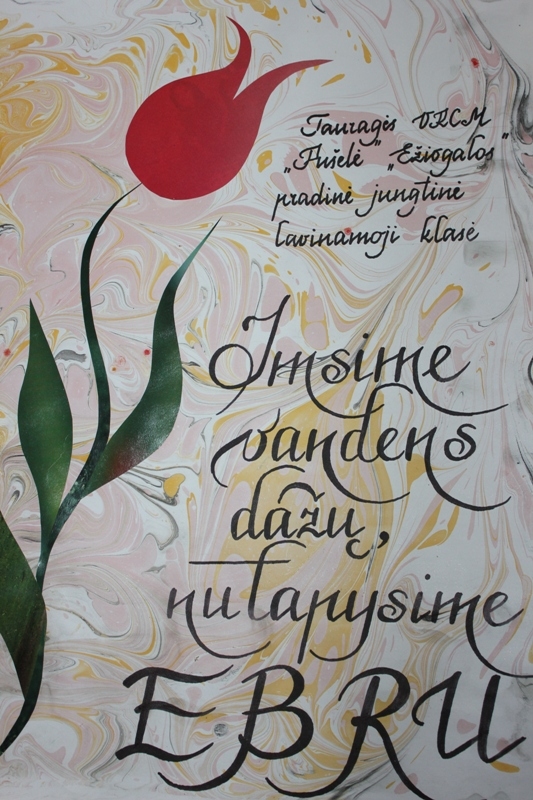 Tauragės VRCM
„Pušelė" „Ežiogalos"
pradinė jungtinė
lavinamoji klasė
Imsime
vandens
dažų,
nutapysime
EBRU